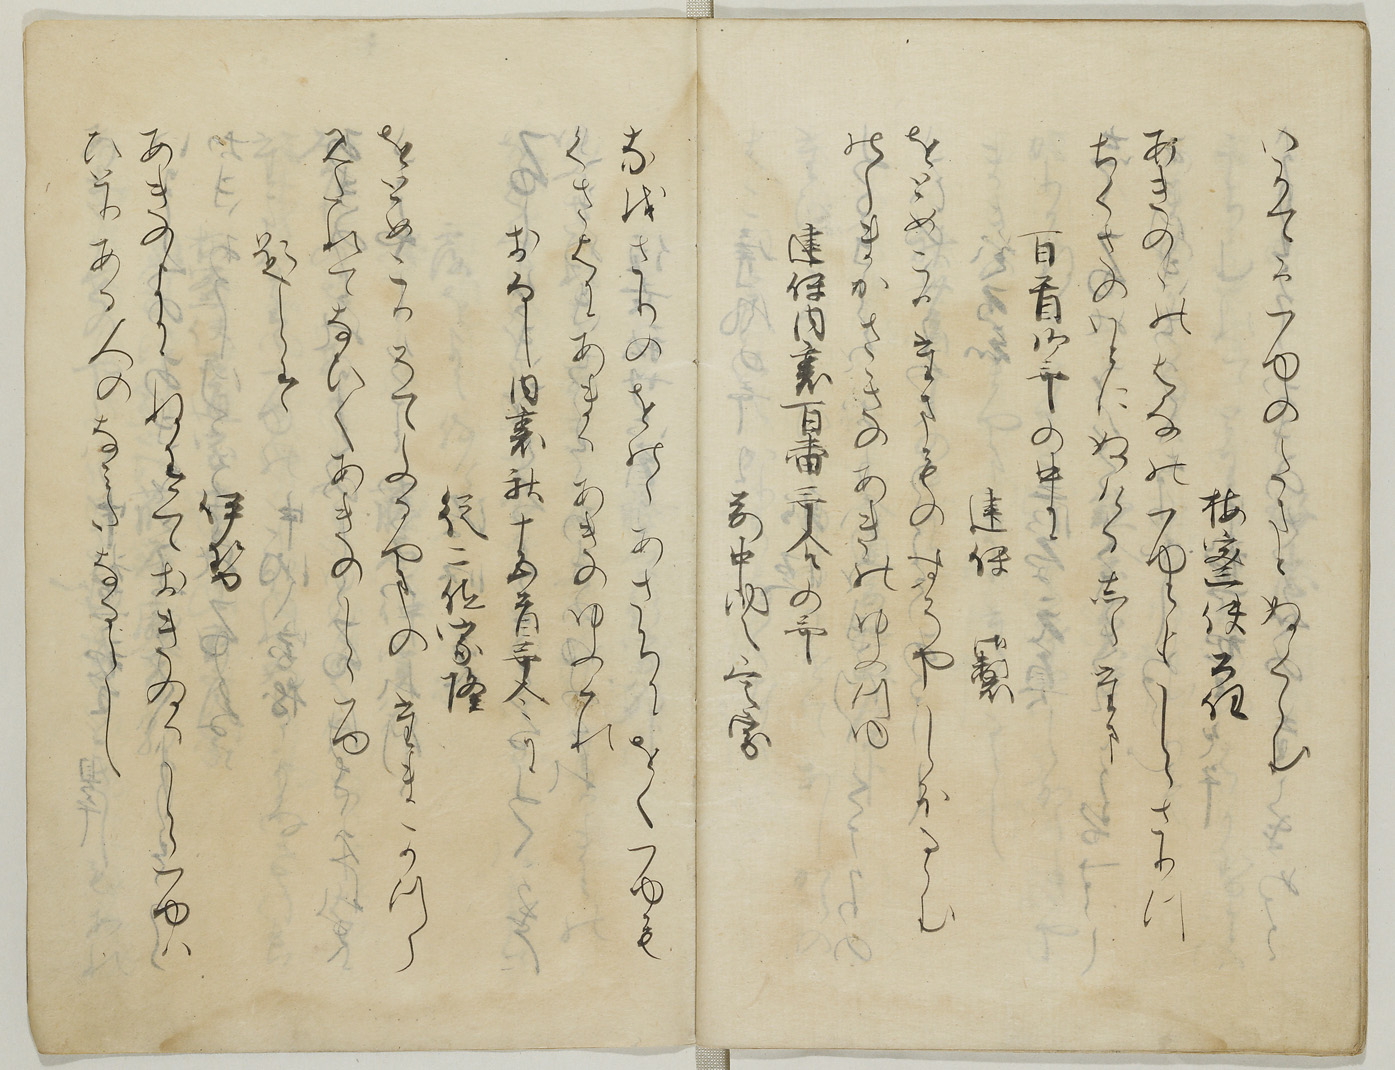 いかてかはつゆの ぬくらむ
按察使公任
あきのゝのはなのつゆともしらさりつ
ちくさのいとにぬける志らたま
百首御哥の中に
建保 御製
をとめこかたまものすそやしほるらむ
のしまかさきのあきのゆふつゆ
建保内裏百番哥合の哥
前中納言定家
なほさりのをのゝあさちにをくつゆも
くさはにあまるあきのゆふくれ
おなし内裏秋十五首哥合に
従二位家隆
をとめこかそてふるやまのたまかつら
みたれてなひくあきのしらつゆ
題しらす
伊勢
あきの ねさめておきゐるしらつゆは
ある人のなみたなるらし